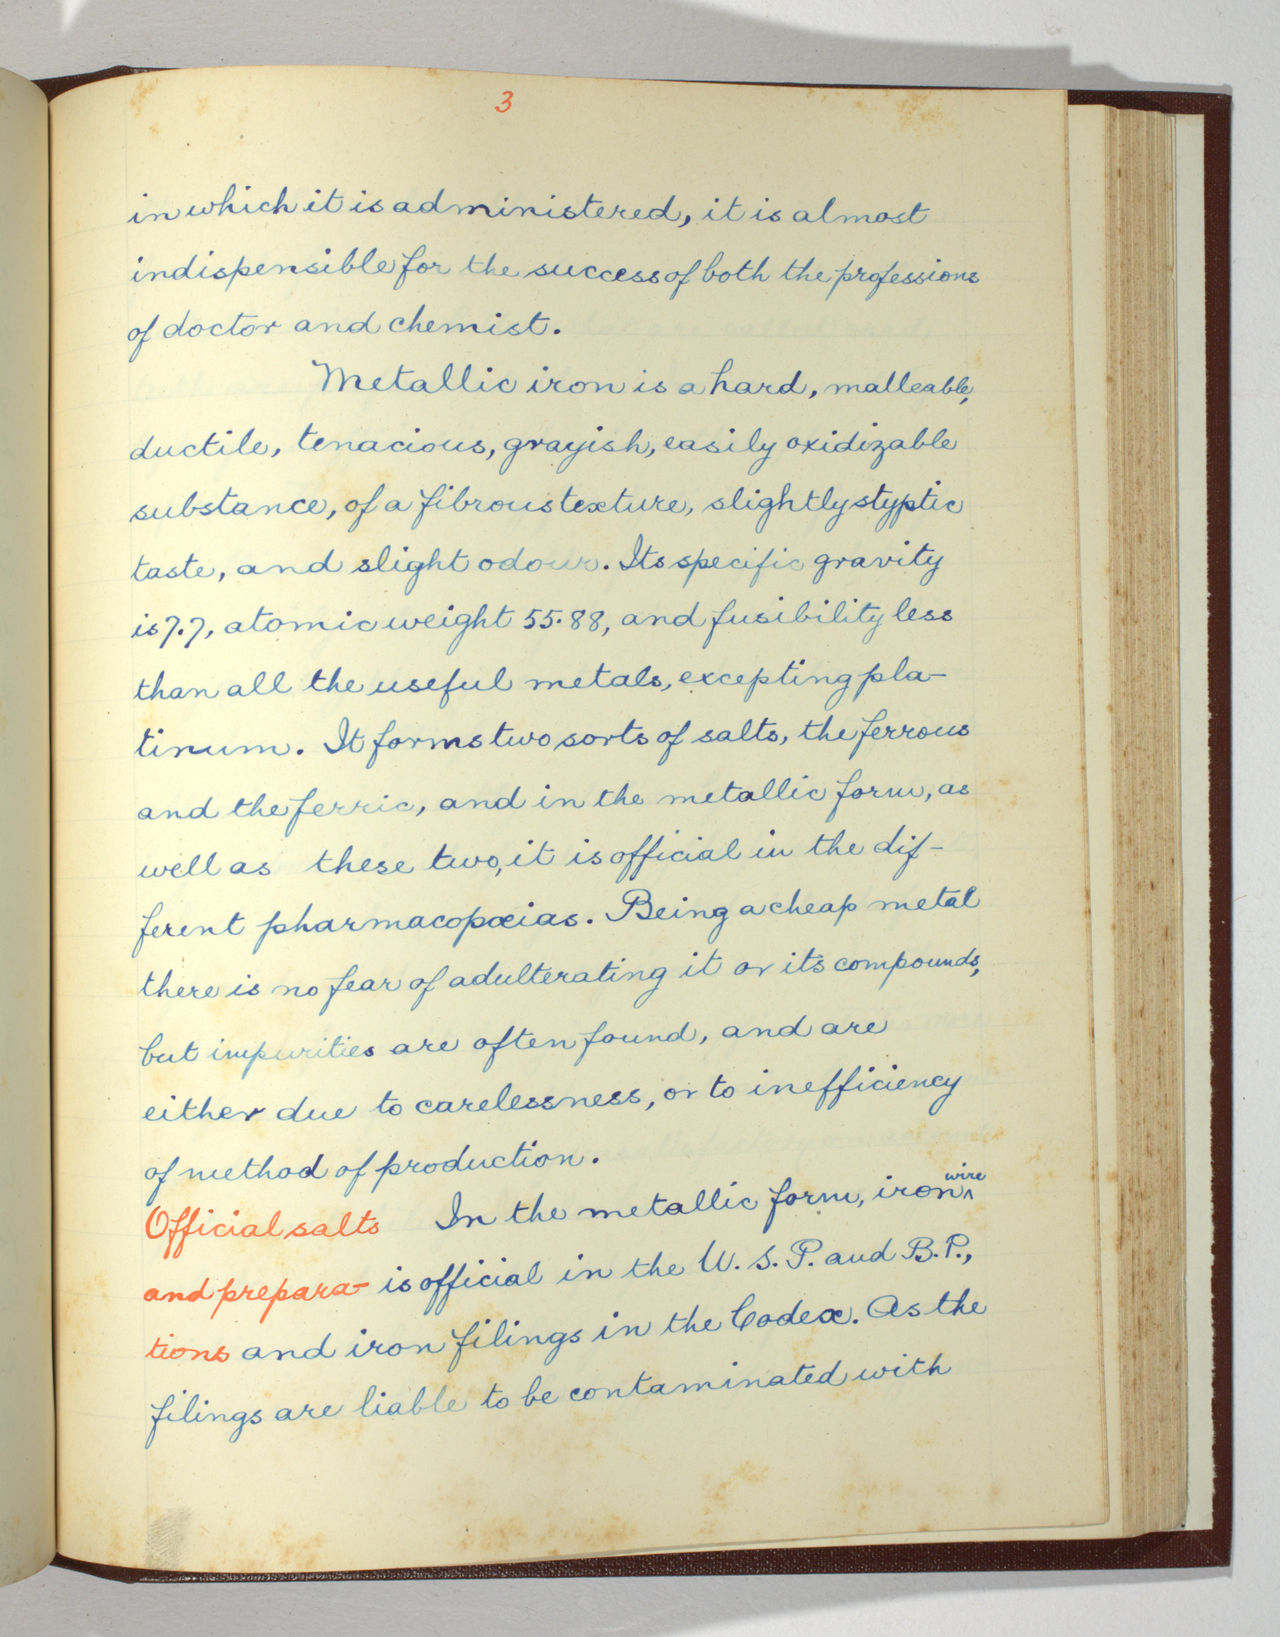 3
in which it is administered, it is almost
indispensible for the success of both the professions
of doctor and chemist.
Metallic iron is a hard, malleable,
ductile, tenacious, grayish, easily oxidizable
substance, of a fibrous texture, slightly styptic
taste, and slight odour. Its specific gravity
is 7.7, atomic weight 55.88, and fusibility less
than all the useful metals, excepting pla-
tinum. It forms two sorts of salts, the ferrous
and the ferric, and in the metallic form, as
well as these two, it is official in the dif-
ferent pharmacopœias. Being a cheap metal
there is no fear of adulterating it or its compounds,
but impurities are often found, and are
either due to carelessness, or to inefficiency
of method of production.
Official salts In the metallic form, iron wire
and prepara- is official in the U. S. P. and B. P.,
tions and iron filings in the Codex. As the
filings are liable to be contaminated with